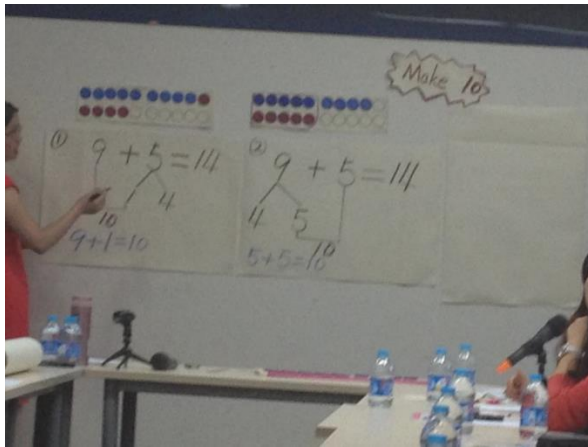 Make 10
① 9 + 5 = 14
1 4
10
9+1=10
② 9 + 5 = 14
4 5
10
5+5=10